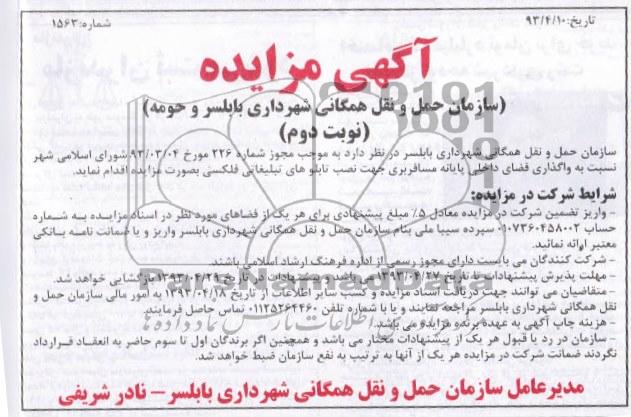 تاریخ: ۹۳/۴/۱۰
شماره: ۱۵۶۳
آگهی مزایده
(سازمان حمل و نقل همگانی شهرداری بابلسر و حومه)
(نوبت دوم)
سازمان حمل و نقل همگانی شهرداری بابلسر در نظر دارد به موجب مجوز شماره ۲۲۶ مورخ ۹۳/۰۳/۰۴ شورای اسلامی شهر
نسبت به واگذاری فضای داخلی پایانه مسافربری جهت نصب تابلو های تبلیغاتی فلکسی بصورت مزایده اقدام نماید.
شرایط شرکت در مزایده:
- واریز تضمین شرکت در مزایده معادل ۵٪ مبلغ پیشنهادی برای هر یک از فضاهای مورد نظر در اسناد مزایـده بـه شـماره
حساب ۰۱۰۷۳۶۰۴۵۸۰۰۲ سپرده سیبا ملی بنام سازمان حمل و نقل همگانی شهرداری بابلسر واریز و یا ضمانت نامه بـانکی
معتبر ارائه نمائید.
- شرکت کنندگان می بایست دارای مجوز رسمی از اداره فرهنگ ارشاد اسلامی باشند.
- مهلت پذیرش پیشنهادات تا تاریخ ۱۳۹۳/۰۴/۲۷ می باشد. پیشنهادات در تاریخ ۱۳۹۳/۰۴/۲۹ بازگشایی خواهد شد.
- متقاضیان می توانند جهت دریافت اسناد مزایده و کسب سایر اطلاعات از تاریخ ۱۳۹۳/۰۴/۱۸ به امور مالی سازمان حمل و
نقل همگانی شهرداری بابلسر مراجعه نمایند و یا با شماره تلفن ۰۱۱۳۵۲۶۴۴۶۰ تماس حاصل فرمایند.
- هزینه چاپ آگهی به عهده برنده مزایده می باشد.
- سازمان در رد یا قبول هر یک از پیشنهادات مختار می باشد و همچنین اگر برندگان اول تا سوم حاضر به انعقـاد قـرارداد
نگردند ضمانت شرکت در مزایده هر یک از آنها به ترتیب به نفع سازمان ضبط خواهد شد.
مدیرعامل سازمان حمل و نقل همگانی شهرداری بابلسر – نادر شریفی
ParsNamadData